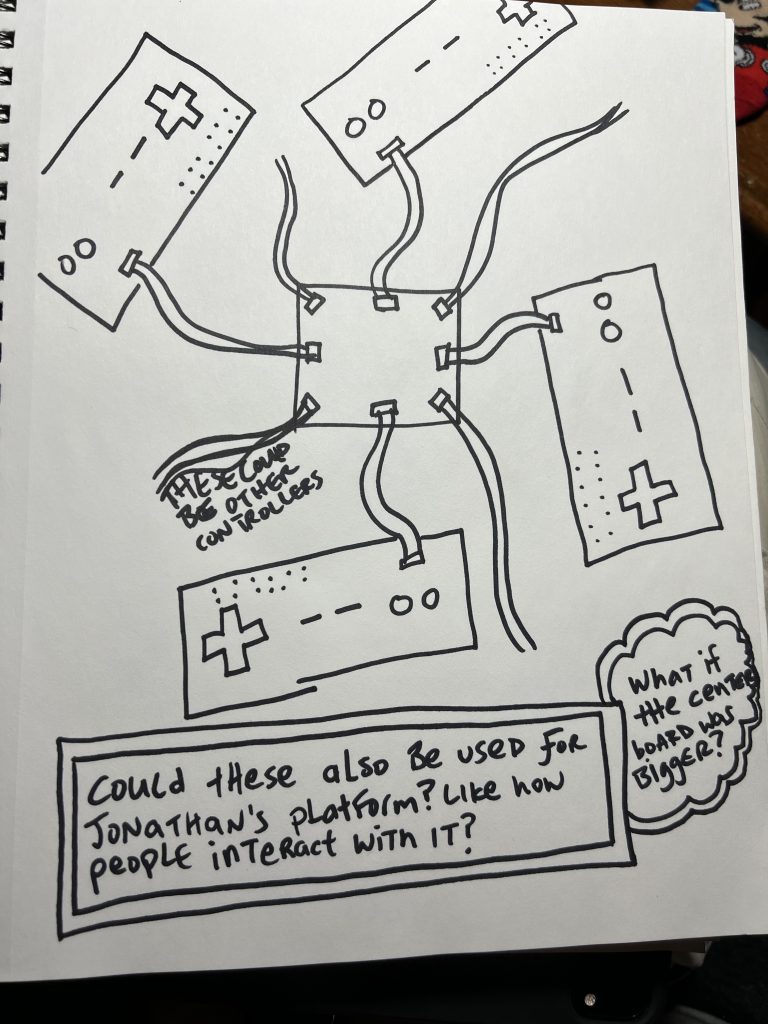 THESE COULD
BE OTHER
CONTROLLERS
WHAT if
tHE CENTER
board was
BIGGER?
COULD tHESE also BE used FOR
JONATHAN'S platform? Like how
pEOPLE intERact WITH IT?